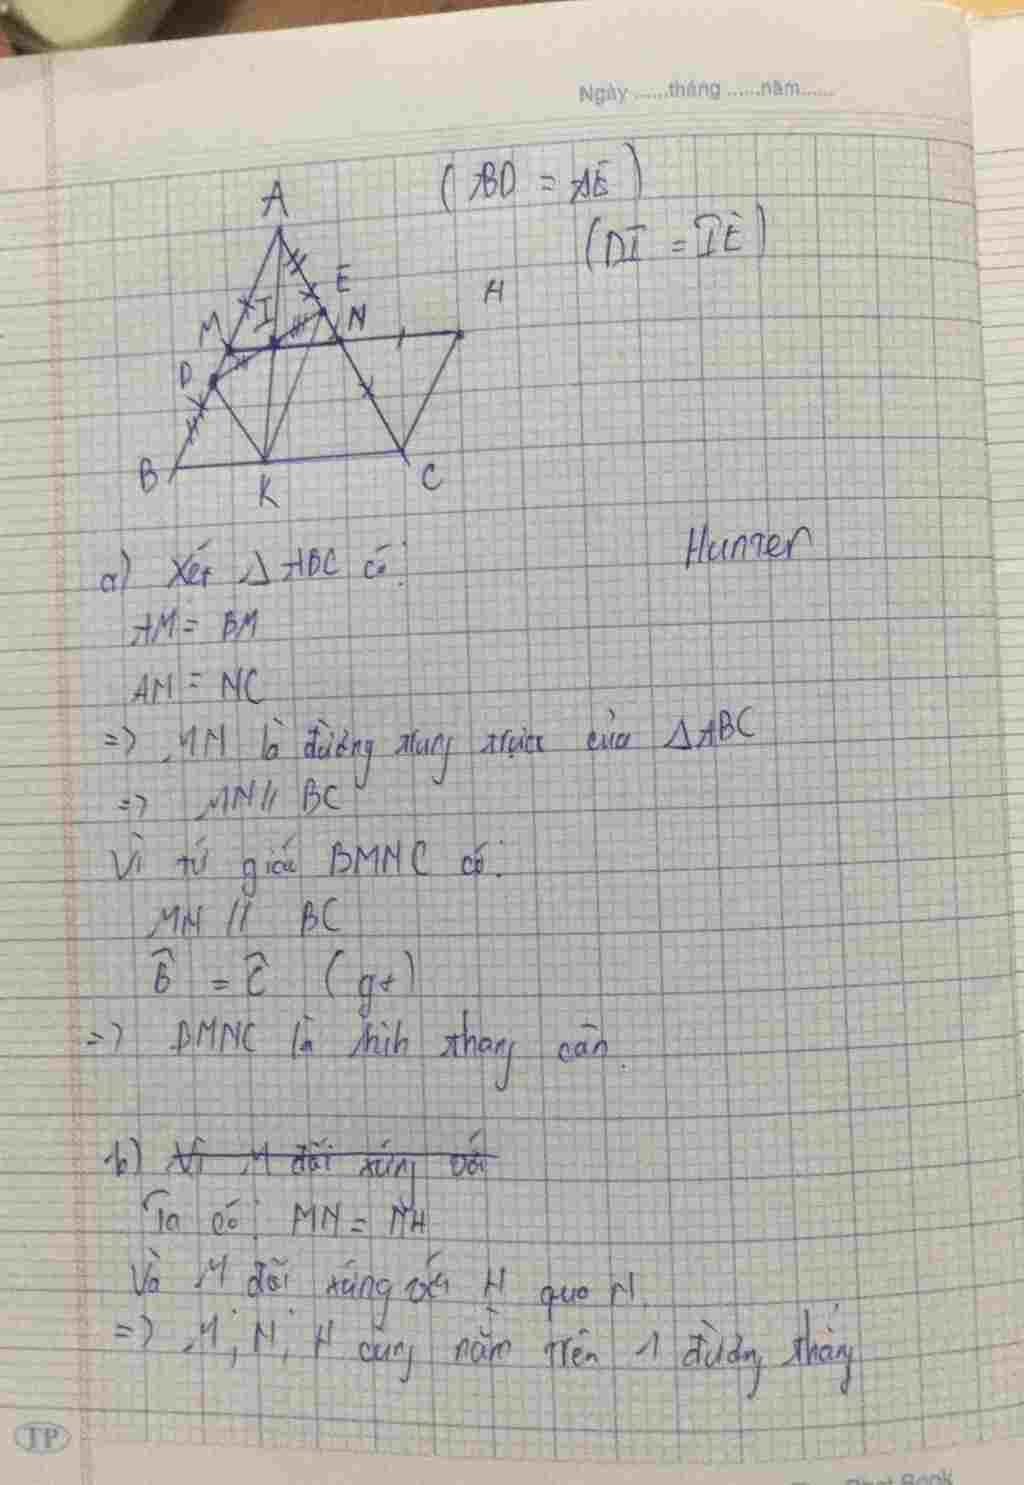 Ngày ......tháng ......năm......
(BD = AE)
(DI = IE)
A
E
H
M
I
N
D
B
K
C
Hunter
a) Xét Δ ABC có:
AM = BM
AN = NC
=> MN là đường trung trực của ΔABC
=> MN // BC
Vì tứ giác BMNC có:
MN // BC
B̂ = Ĉ (gt)
=> BMNC là hình thang cân.
b) Vì M đối xứng với
Ta có: MN = NH
Và M đối xứng với H qua N.
=> M, N, H cùng nằm trên 1 đường thẳng
TP
Book